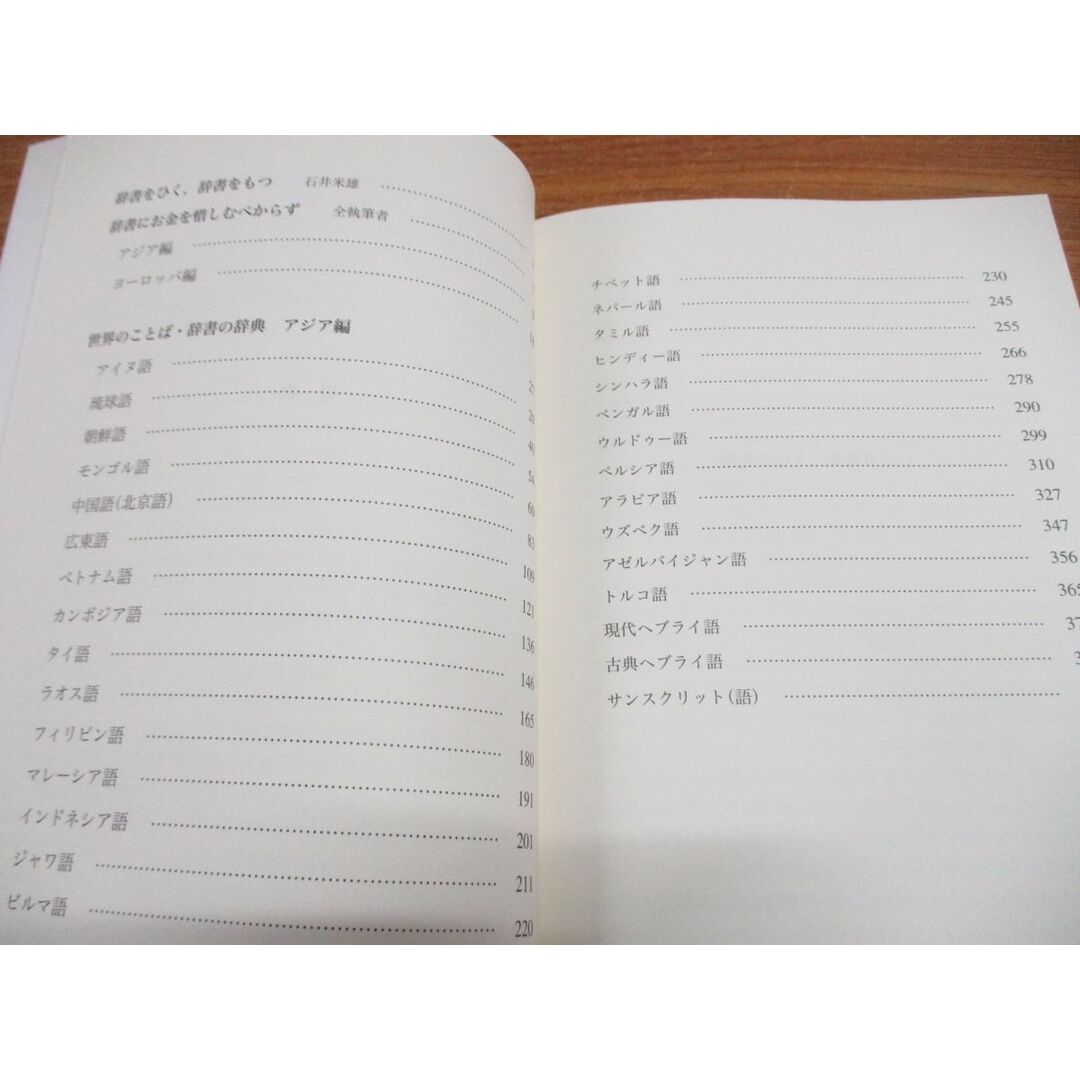 辞書をひく、辞書をもつ 石井米雄 ……
辞書にお金を惜しむべからず 全執筆者 ……
アジア編 ……
ヨーロッパ編 ……
世界のことば・辞書の辞典 アジア編
アイヌ語 ……
琉球語 ……
朝鮮語 ……
モンゴル語 …… 54
中国語(北京語) ……
広東語 …… 83
ベトナム語 …… 109
カンボジア語 …… 121
タイ語 …… 136
ラオス語 …… 146
フィリピン語 …… 165
マレーシア語 …… 180
インドネシア語 …… 191
ジャワ語 …… 201
ビルマ語 …… 211
220
チベット語 …… 230
ネパール語 …… 245
タミル語 …… 255
ヒンディー語 …… 266
シンハラ語 …… 278
ベンガル語 …… 290
ウルドゥー語 …… 299
ペルシア語 …… 310
アラビア語 …… 327
ウズベク語 …… 347
アゼルバイジャン語 …… 356
トルコ語 …… 365
現代ヘブライ語 …… 37
古典ヘブライ語 …… 3
サンスクリット(語) ……